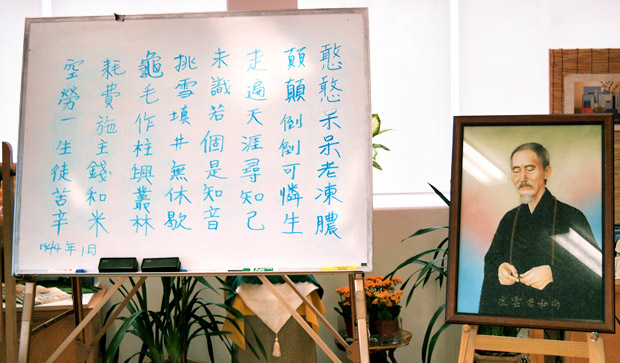 憨憨呆呆老凍膿
顛顛倒倒可憐生
走遍天涯尋知己
未識若個是知音
挑雪填井無休歇
龜毛作柱興叢林
耗費施主錢和米
空勞一生徒苦辛
1944年1日
虛雲老和尚